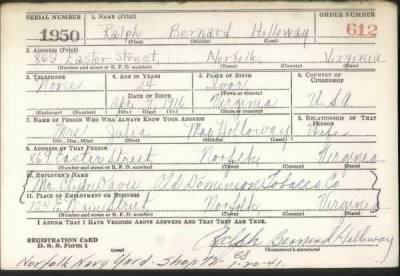 SERIAL NUMBER 1. NAME (Print) ORDER NUMBER
1950 Ralph Bernard Holloway 612
(First) (Middle) (Last)
2. ADDRESS (Print)
869 Easter Street, Norfolk Virginia
(Number and street or R. F. D. number) (Town) (County) (State)
3. TELEPHONE 4. AGE IN YEARS 5. PLACE OF BIRTH 6. COUNTRY OF CITIZENSHIP
None 24 Ivor
DATE OF BIRTH (Town or county)
Apr. 7 1916 Virginia U.S.A.
(Exchange) (Number) (Mo.) (Day) (Yr.) (State or country)
7. NAME OF PERSON WHO WILL ALWAYS KNOW YOUR ADDRESS 8. RELATIONSHIP OF THAT PERSON
Mrs. Julia Mae Holloway Wife
(Mr., Mrs., Miss) (First) (Middle) (Last)
9. ADDRESS OF THAT PERSON
869 Easter Street Norfolk Virginia
(Number and street or R. F. D. number) (Town) (County) (State)
10. EMPLOYER'S NAME
Mr. Davis Old Dominion Tobacco Co.
11. PLACE OF EMPLOYMENT OR BUSINESS
E. Main Street Norfolk Virginia
(Number and street or R. F. D. number) (Town) (County) (State)
I AFFIRM THAT I HAVE VERIFIED ABOVE ANSWERS AND THAT THEY ARE TRUE.
REGISTRATION CARD
D. S. S. Form 1 Ralph Bernard Holloway
(Registrant's signature)
Norfolk Navy Yard - Shop